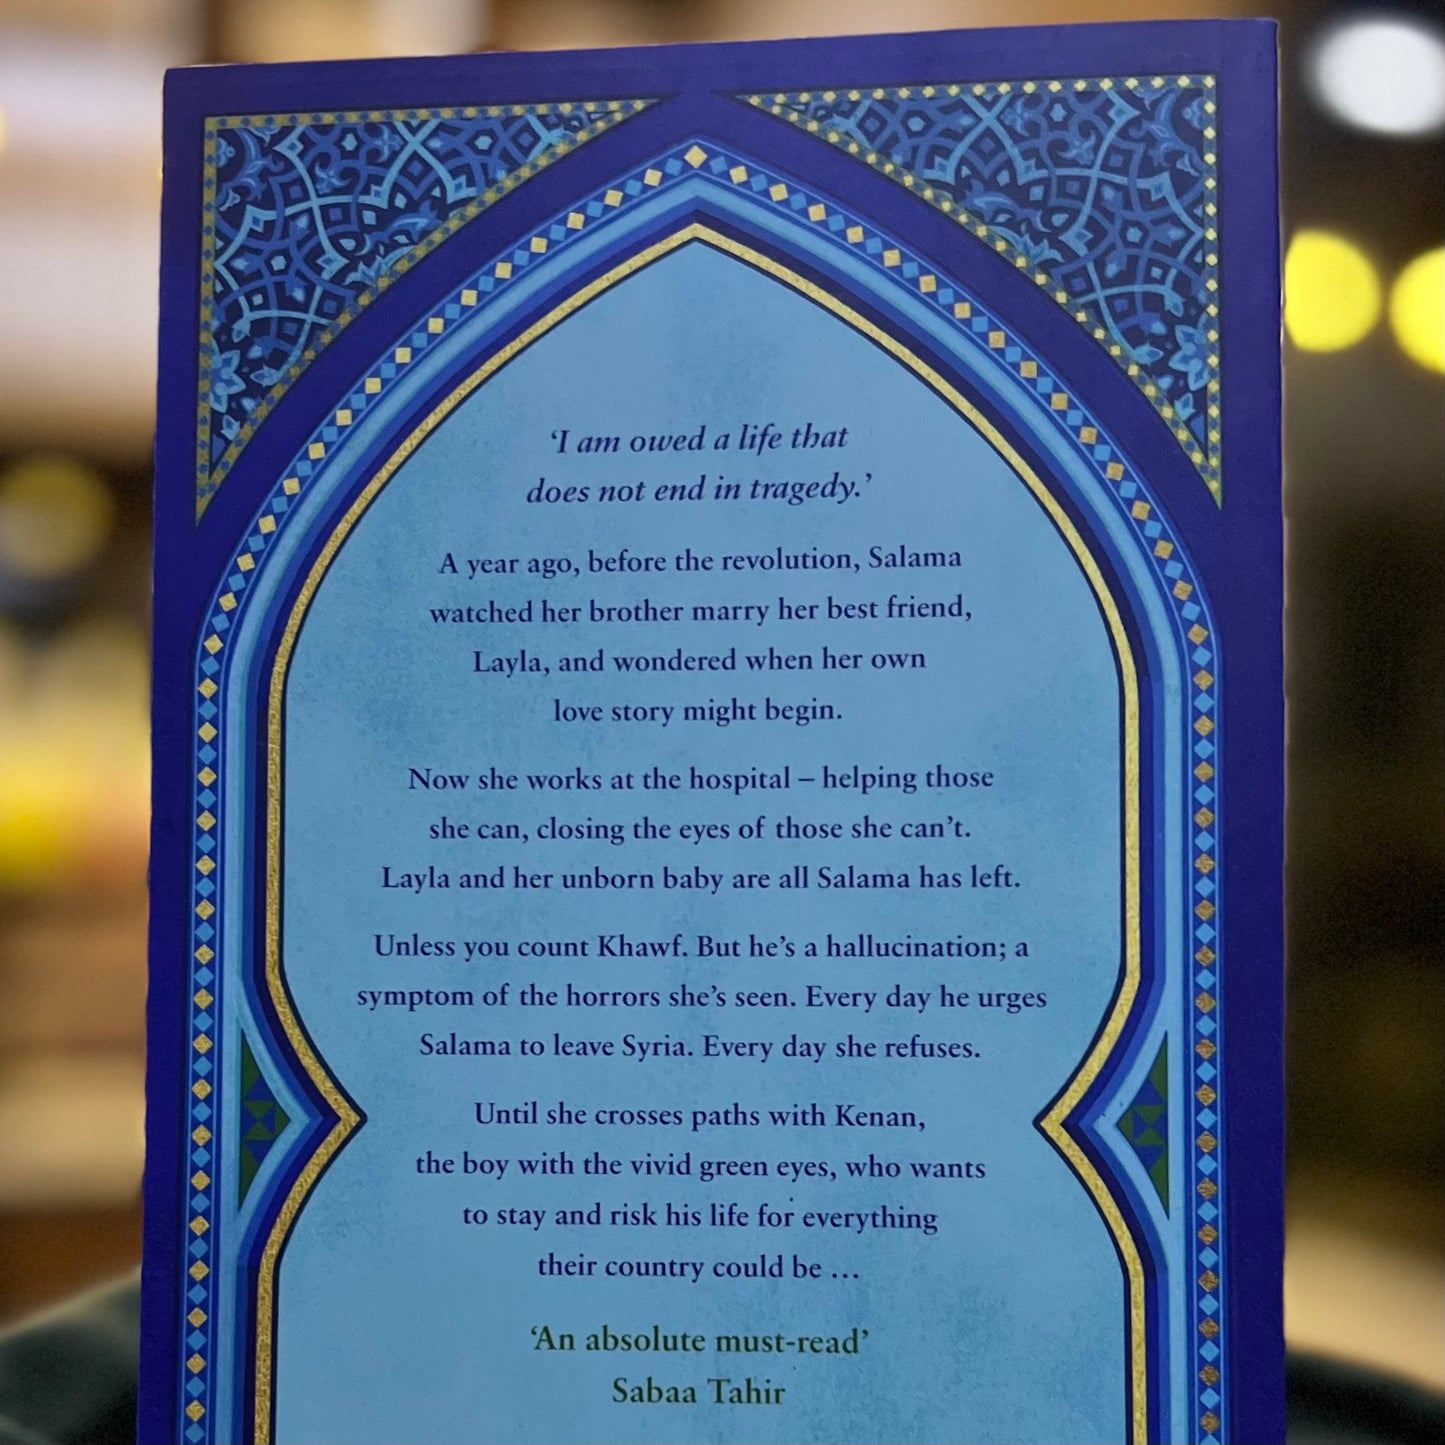 ‘I am owed a life that
does not end in tragedy.’
A year ago, before the revolution, Salama
watched her brother marry her best friend,
Layla, and wondered when her own
love story might begin.
Now she works at the hospital – helping those
she can, closing the eyes of those she can’t.
Layla and her unborn baby are all Salama has left.
Unless you count Khawf. But he’s a hallucination; a
symptom of the horrors she’s seen. Every day he urges
Salama to leave Syria. Every day she refuses.
Until she crosses paths with Kenan,
the boy with the vivid green eyes, who wants
to stay and risk his life for everything
their country could be ...
‘An absolute must-read’
Sabaa Tahir